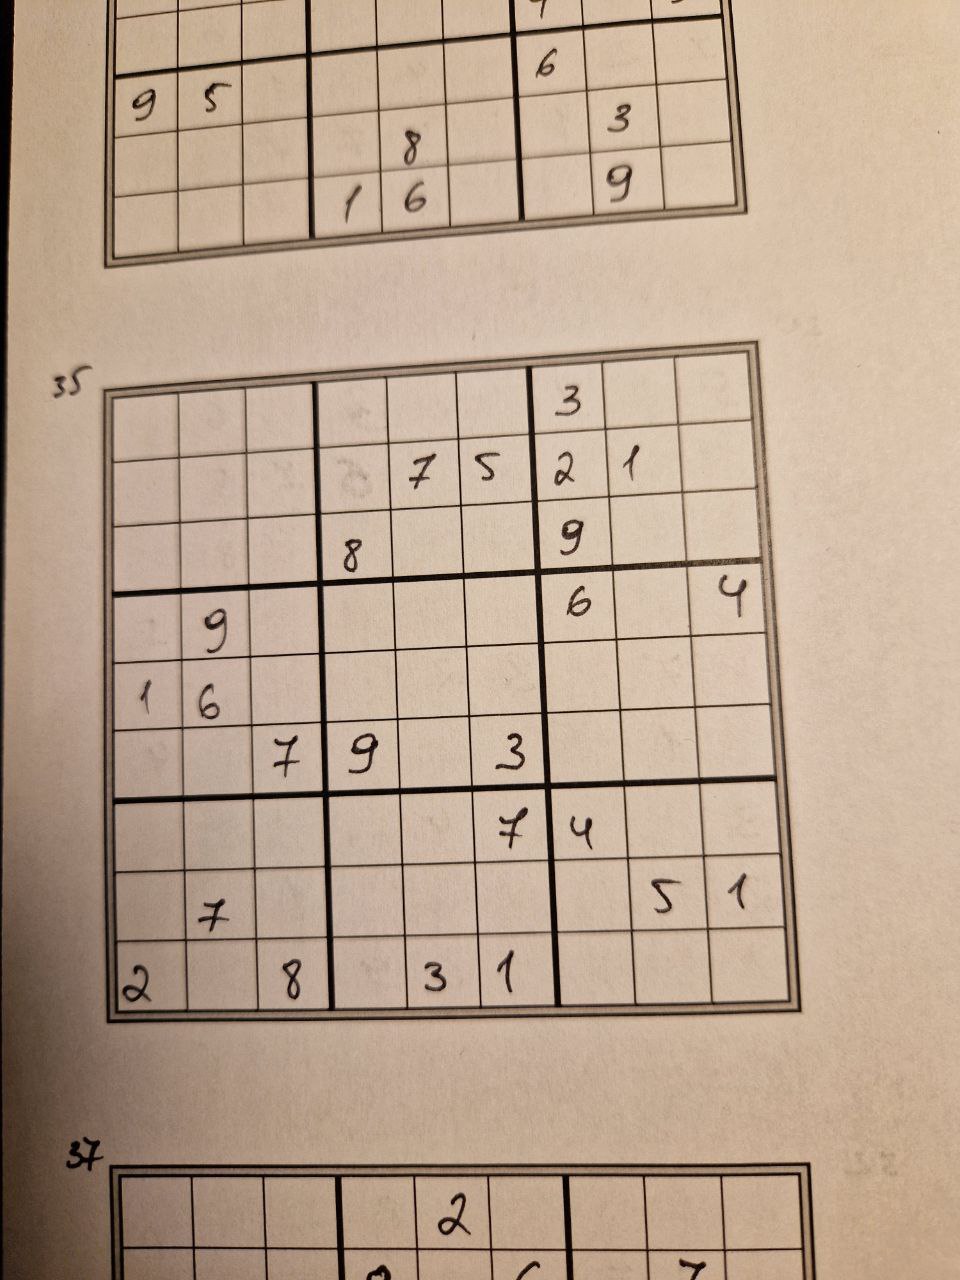 6
9 5
8 3
1 6 9
35
3
7 5 2 1
8 9
9 6 4
1 6
7 9 3
7 4
7 5 1
2 8 3 1
37
2
7